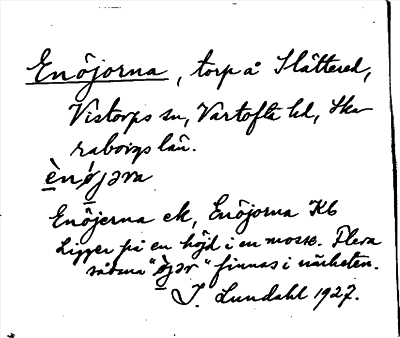 Enöjorna, torp å Slättered,
Vistorps sn, Vartofta hd, Ska
raborgs län.
ènø̀jəra
Enöjerna ek, Enöjorna Kb
Ligger på en höjd i en mosse. Flera
sådana "öjər" finnas i närheten.
J. Lundahl 1927.